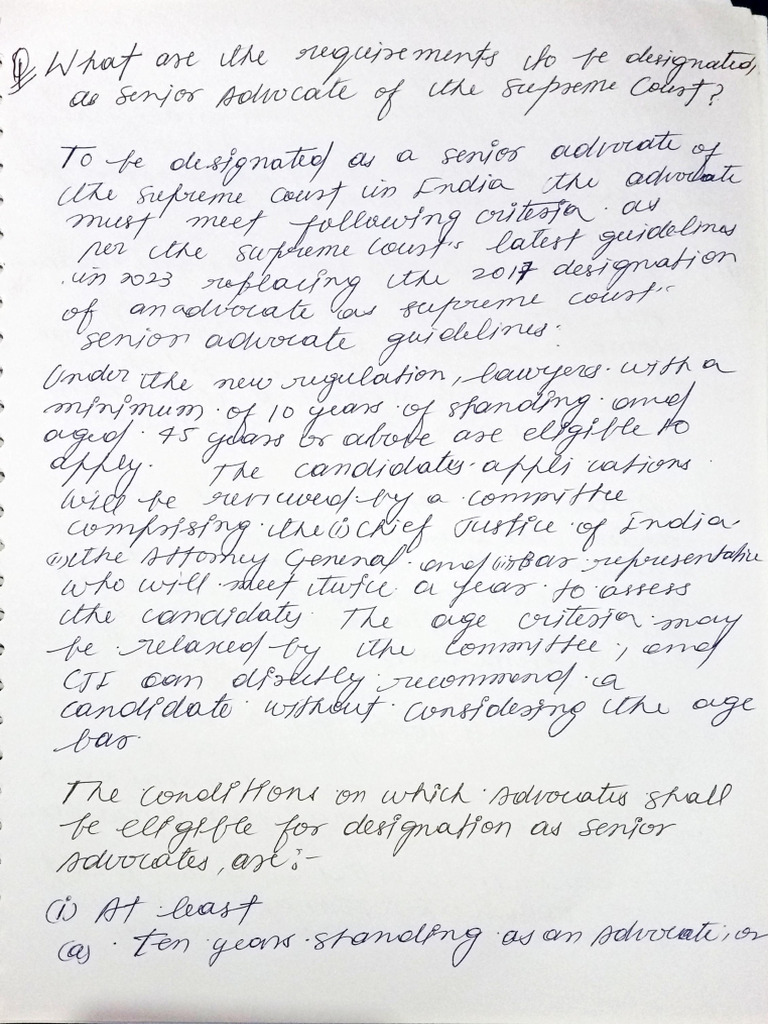 Q What are the requirements to be designated,
as Senior Advocate of the Supreme Court?
To be designated as a senior advocate of
the supreme court in India the advocate
must meet following criteria as
per the supreme court's latest guidelines
in 2023 replacing the 2017 designation
of an advocate as supreme court's
senior advocate guidelines.
Under the new regulation, lawyers with a
minimum of 10 years of standing and
aged 45 years or above are eligible to
apply. The candidates applications
will be reviewed by a committee
comprising the (i) Chief Justice of India
(ii) the Attorney General and (iii) Bar representative
who will meet twice a year to assess
the candidates. The age criteria may
be relaxed by the committee, and
CJI can directly recommend a
candidate without considering the age
bar.
The conditions on which Advocates shall
be eligible for designation as senior
Advocates, are:-
(i) At least
(a) Ten years standing as an Advocate, or